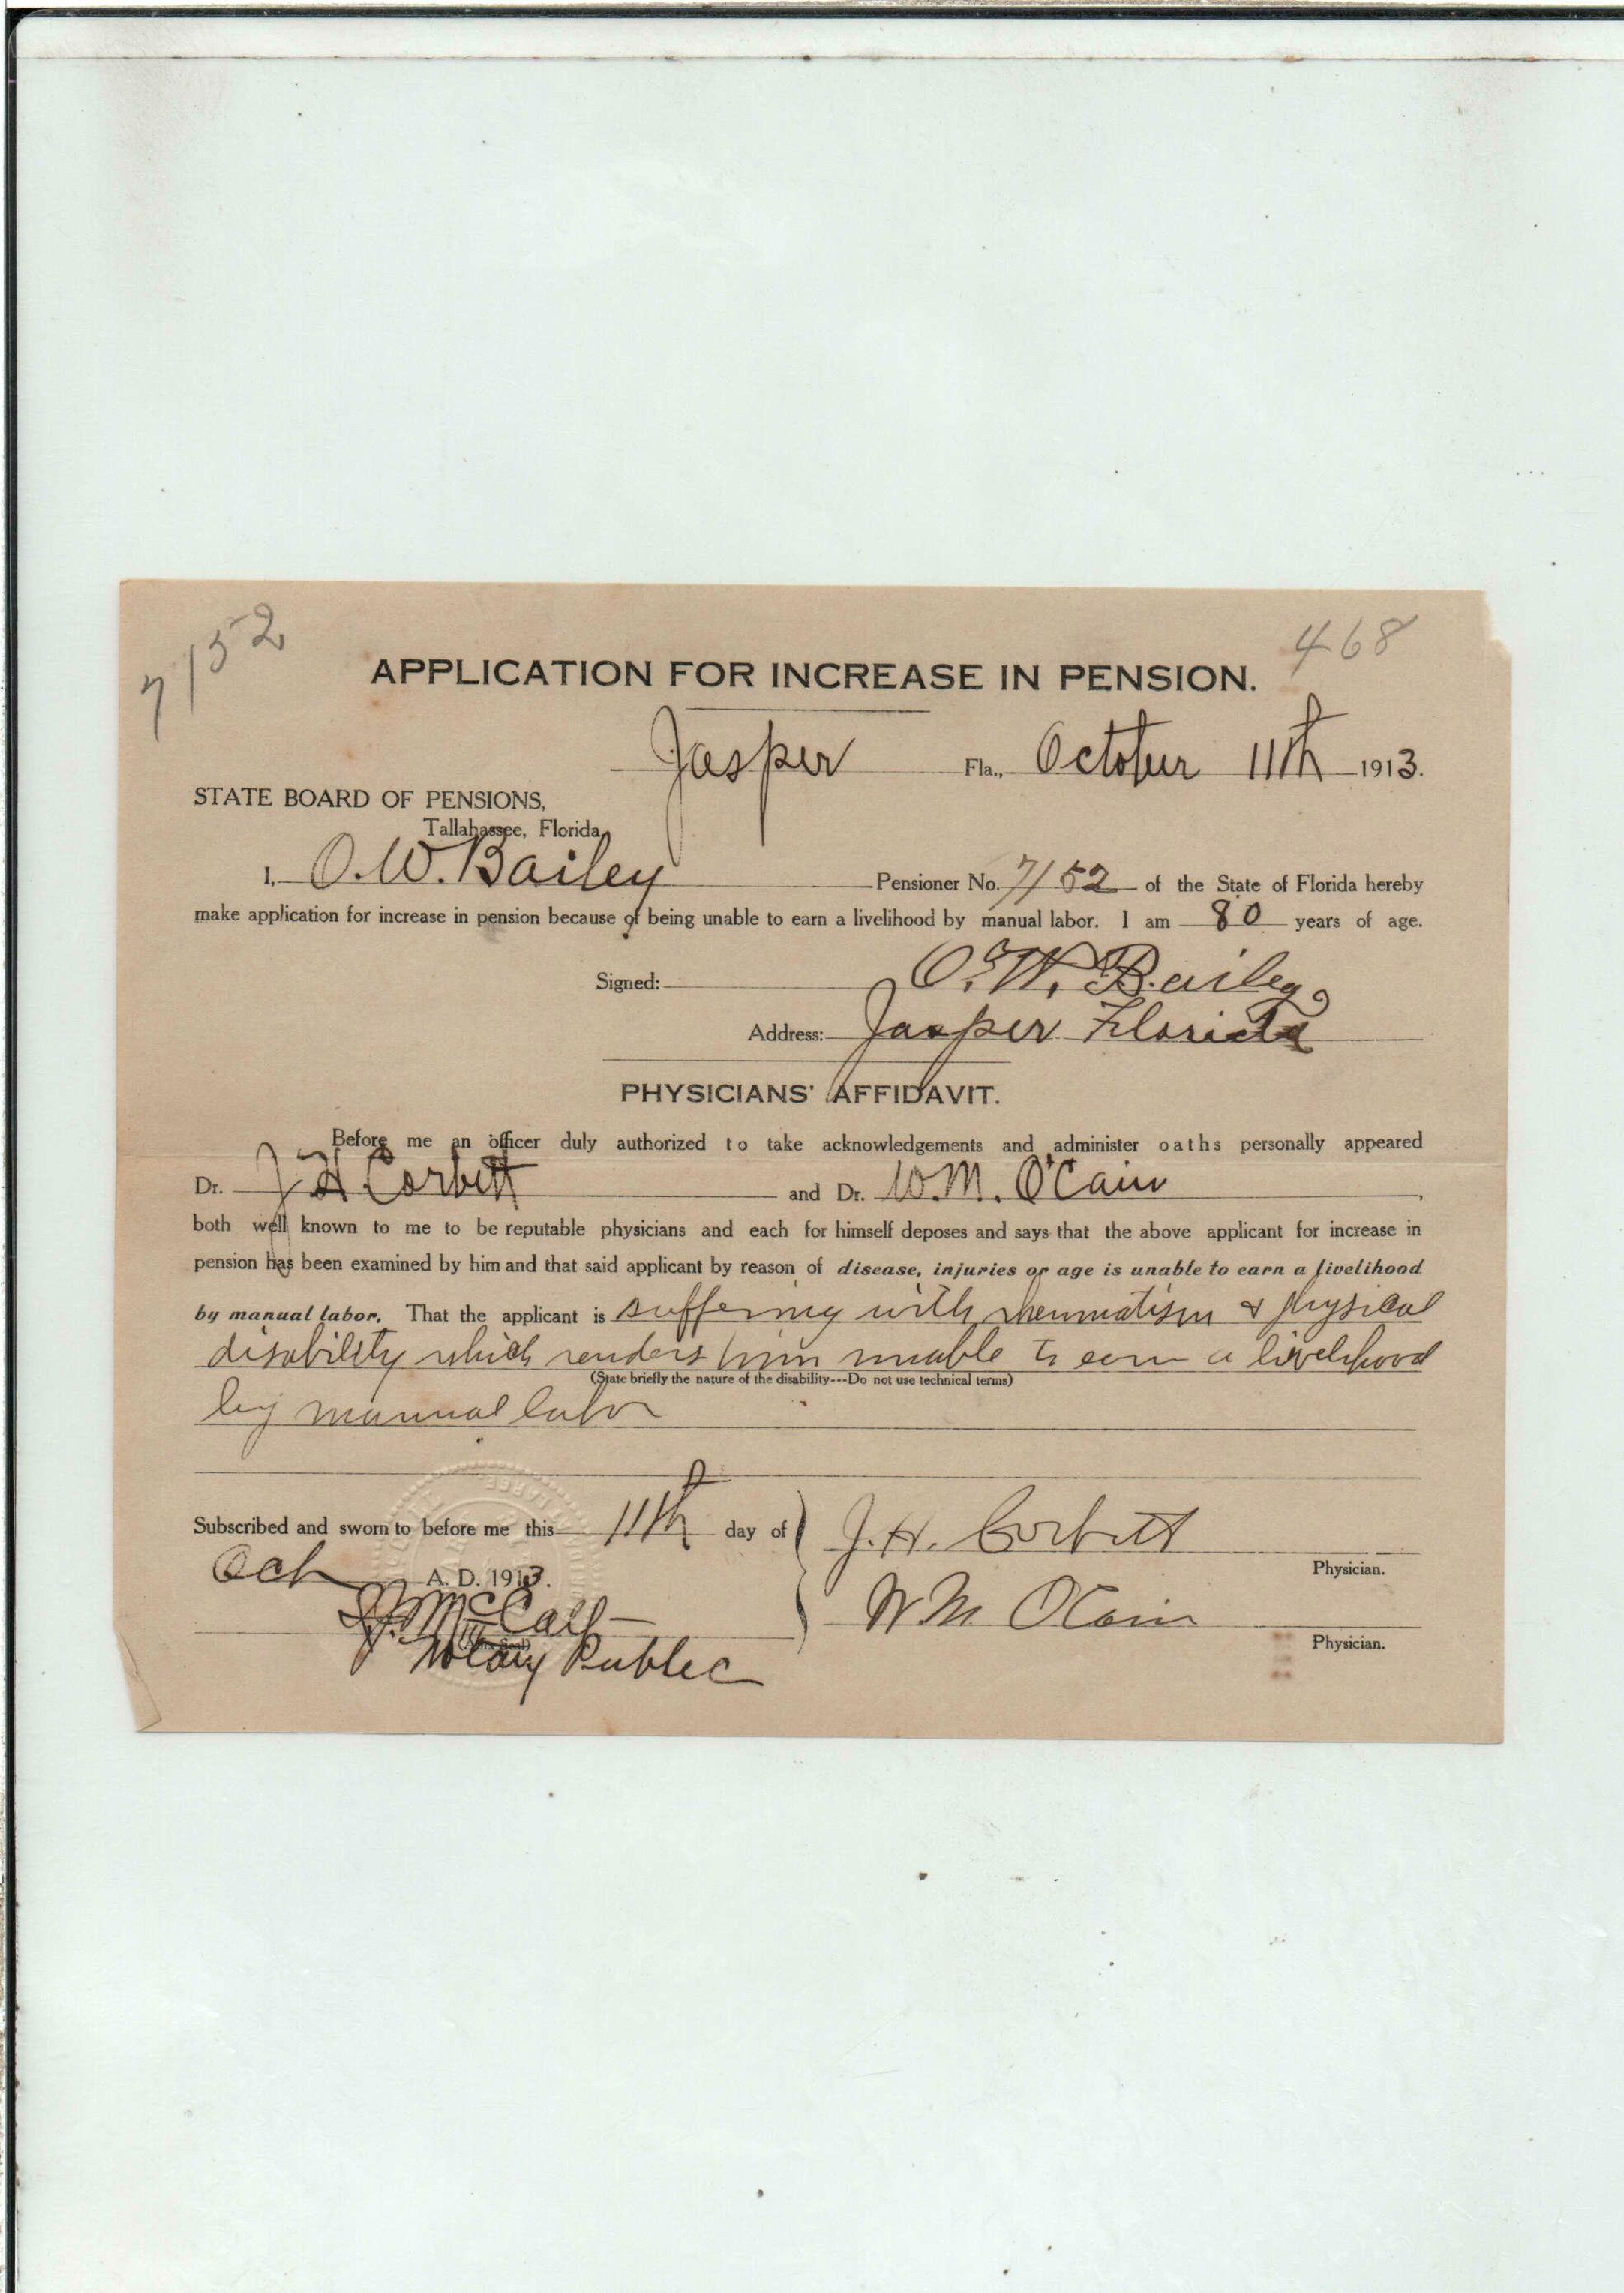 7152
468
APPLICATION FOR INCREASE IN PENSION.
Jasper Fla., October 11th 1913.
STATE BOARD OF PENSIONS,
Tallahassee, Florida,
I, O.W. Bailey Pensioner No. 7152 of the State of Florida hereby
make application for increase in pension because of being unable to earn a livelihood by manual labor. I am 80 years of age.
Signed: O.W. Bailey
Address: Jasper Florida
PHYSICIANS' AFFIDAVIT.
Before me an officer duly authorized to take acknowledgements and administer oaths personally appeared
Dr. J H Corbett and Dr. W.M. O'Cain,
both well known to me to be reputable physicians and each for himself deposes and says that the above applicant for increase in
pension has been examined by him and that said applicant by reason of disease, injuries or age is unable to earn a livelihood
by manual labor. That the applicant is suffering with rheumatism & physical
disability which renders him unable to earn a livelihood
(State briefly the nature of the disability---Do not use technical terms)
by manual labor
Subscribed and sworn to before me this 11th day of
Oct A. D. 1913.
McCall
Notary Public
J.H. Corbett
Physician.
W M OCain
Physician.